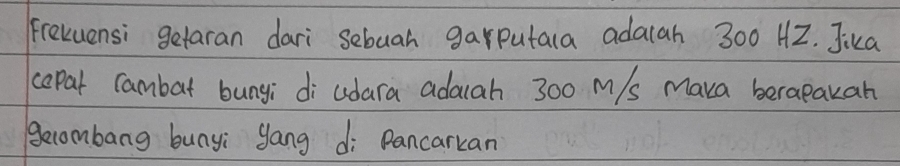 Frekuensi getaran dari sebuah garputala adalah 300 HZ. Jika
cepat rambat bunyi di udara adalah 300 M/s Maka berapakah
gelombang bunyi yang di Pancarkan